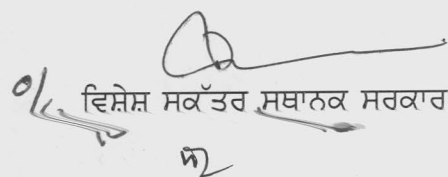 ਵਿਸ਼ੇਸ਼ ਸਕੱਤਰ ਸਥਾਨਕ ਸਰਕਾਰ